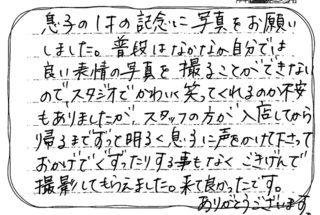 息子の1才の記念に写真をお願い
しました。普段はなかなか自分では
良い表情の写真を撮ることができない
ので、スタジオでかわいく笑ってくれるのか不安
もありましたが、スタッフの方が入店してから
帰るまでずっと明るく息子に声をかけて下さって
おかげでぐずったりする事もなくごきげんで
撮影してもらえました。来て良かったです。
ありがとうございます。